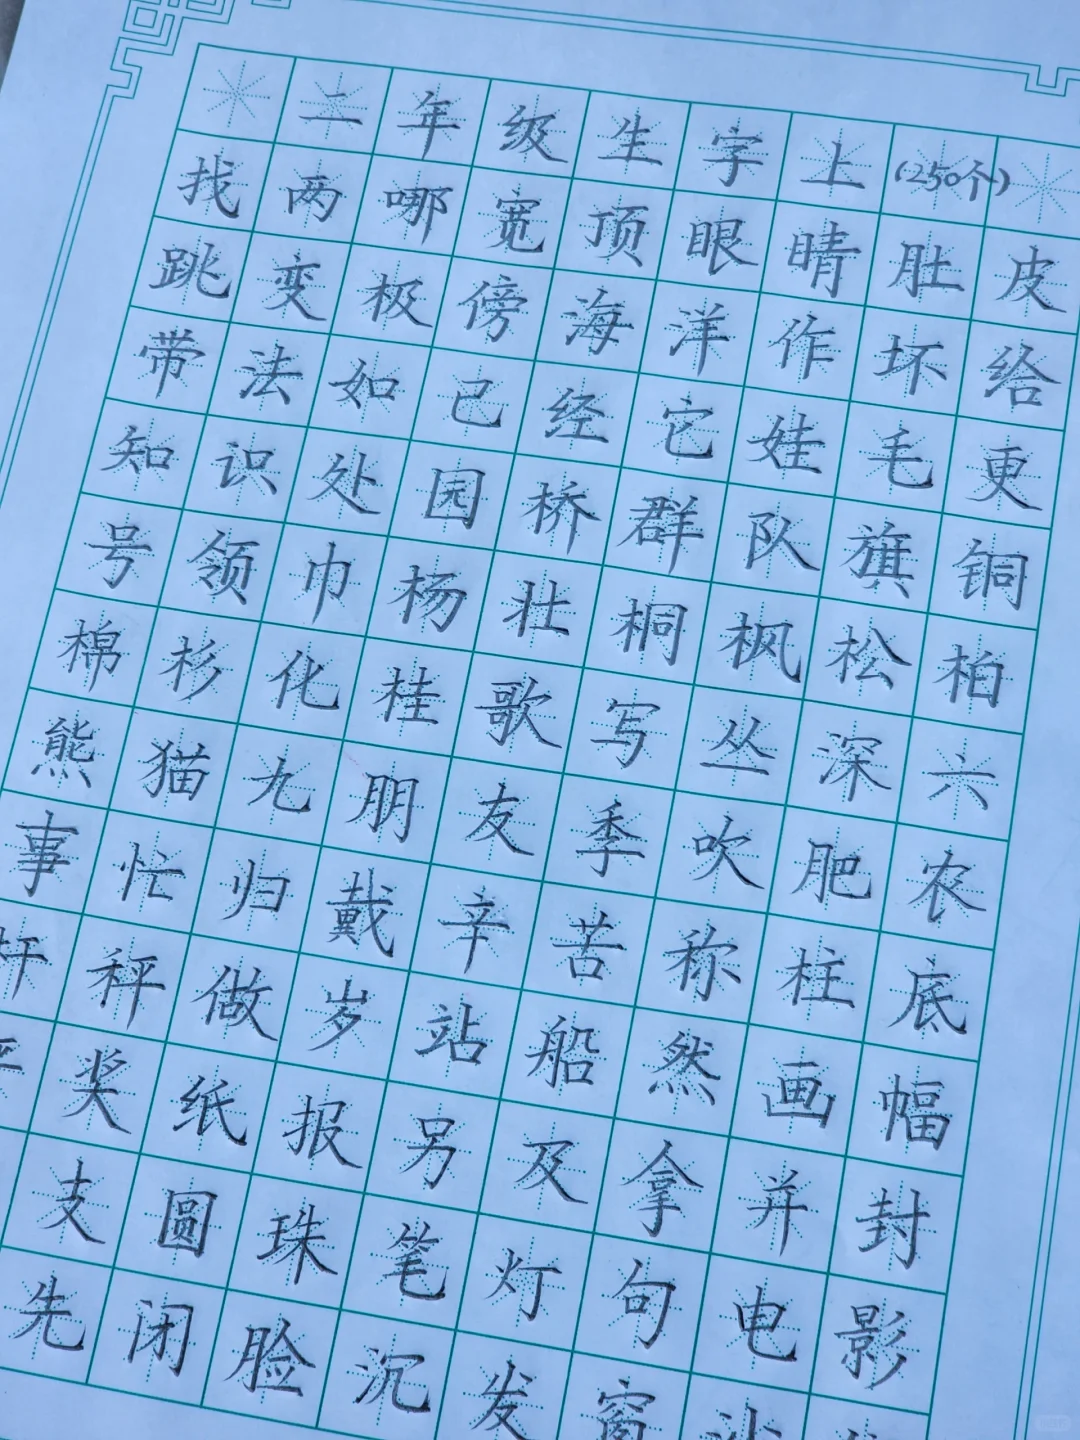 二年级生字上(250个)
找两哪宽顶眼睛肚皮
跳变极傍海洋作坏给
带法如已经它娃毛更
知识处园桥群队旗铜
号领巾杨壮桐枫松柏
棉杉化桂歌写丛深六
熊猫九朋友季吹肥农
事忙归戴辛苦称柱底
杆秤做岁站船然画幅
奖纸报另及拿并封
支圆珠笔灯句电影
先闭脸沉发窗